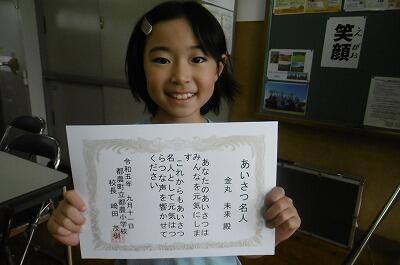 笑顔
えがお
あいさつ名人
金丸 未来 殿
あなたのあいさつは
みんなを元気にしま
す
これからもあいさつ
名人として元気はつ
らつな声を響かせて
ください
令和五年 九月十一日
都農町立都農小学校
校長 崎田